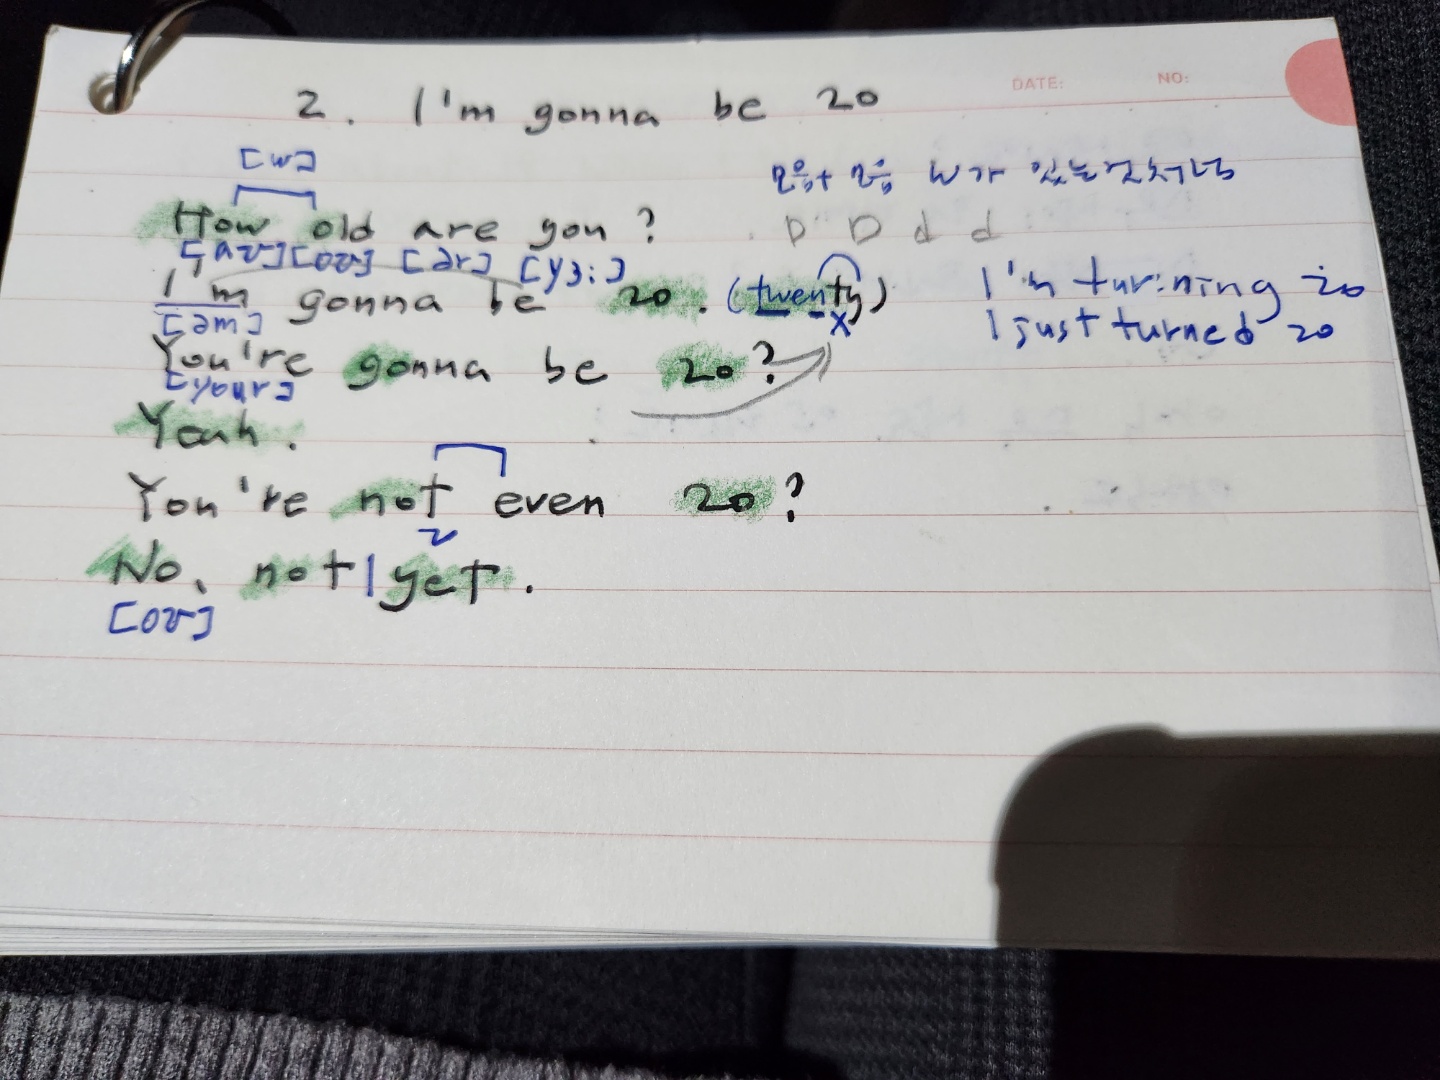 DATE: NO:
2. I'm gonna be 20
[w]
모음+모음 w가 있는것처럼
How old are you?
D D d d
[aʊ] [oʊ] [ər] [yɜ:]
I'm gonna be 20. (twenty)
I'm turining 20
[əm]
x
I just turned 20
You're gonna be 20?
[your]
Yeah.
You're not even 20?
No, not | yet.
[oʊ]